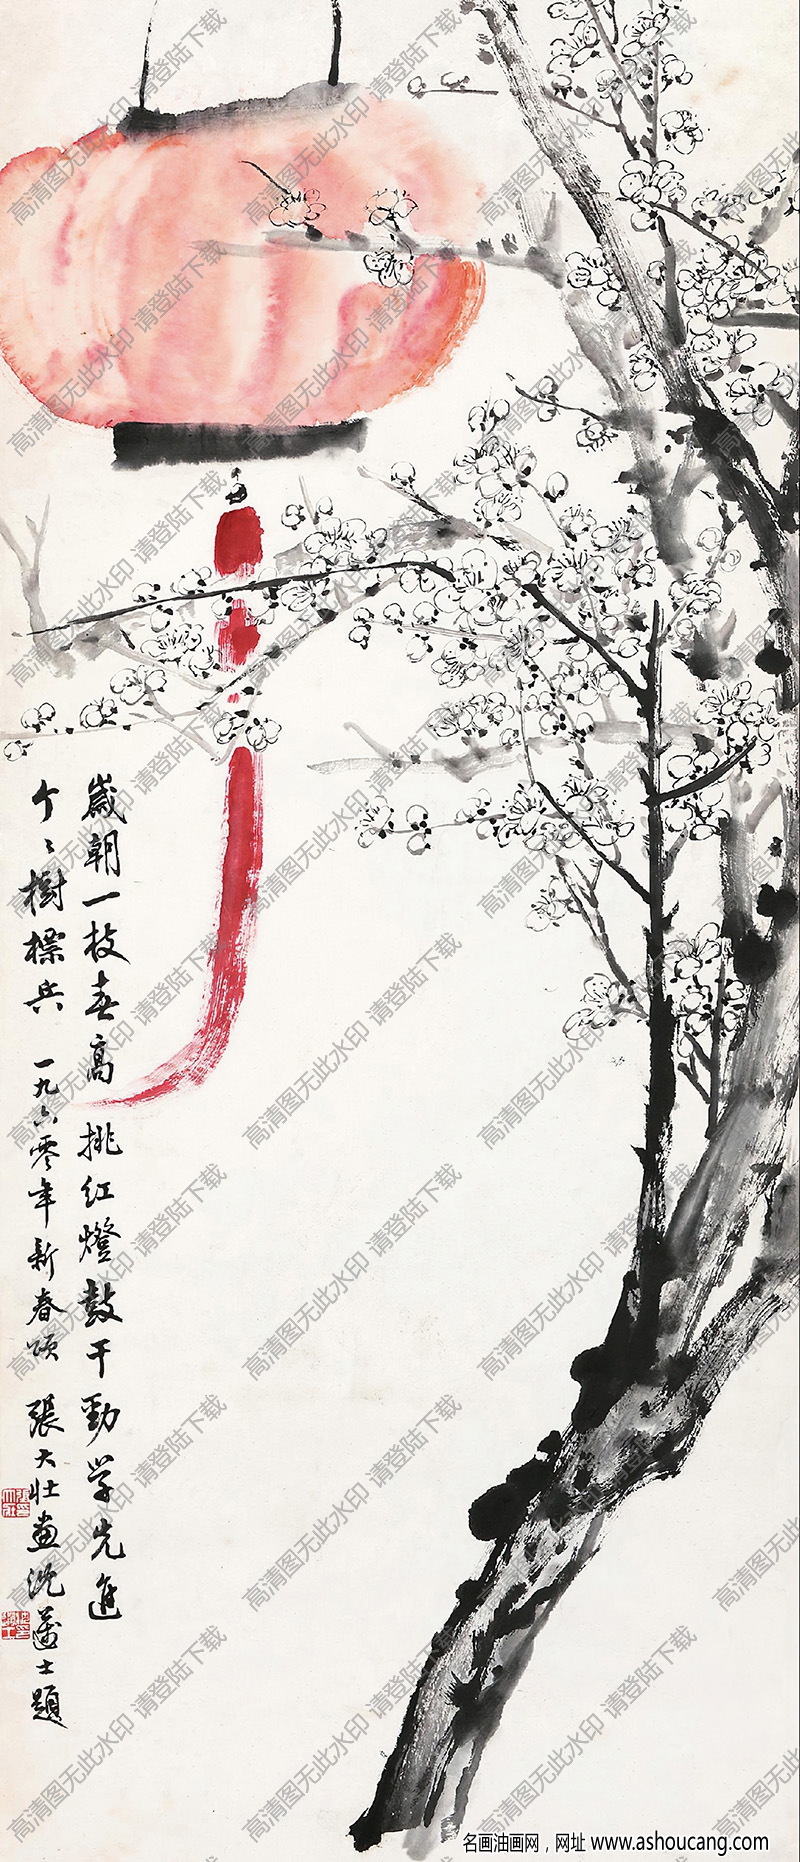 歲朝一枝春高挑紅燈鼓干勁學先進
个〻樹標兵 一九六零年新春頌 張大壯畫沈蔥士題
高清图无此水印 请登陆下载
名画油画网，网址 www.ashoucang.com